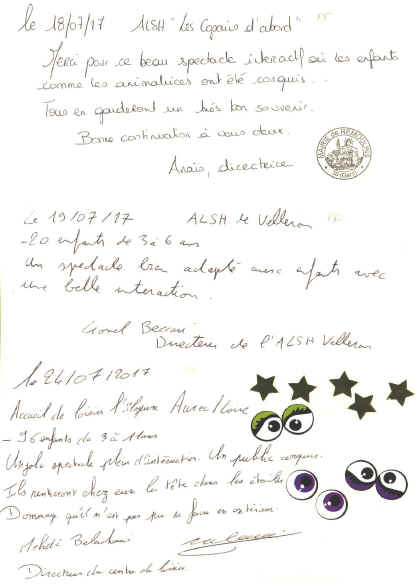 le 18/07/17 ALSH "Les Copains d'abord"
Merci pour ce beau spectacle interactif où les enfants
comme les animatrices ont été conquis...
Tous en garderont un très bon souvenir.
Bonne continuation à vous deux.
MAIRIE de REMOULINS
(Gard)
Anaïs, directrice
Le 19/07/17 ALSH de Velleron
-20 enfants de 3 à 6 ans
Un spectacle bien adapté aux enfants avec
une belle interaction.
Lionel
Directeur de l'ALSH Velleron
le 24/07/2017
Accueil de loisirs Aurec/Loire
- 96 enfants de 3 à 11 ans
Un joli spectacle plein d'interaction. Un public conquis.
Ils rentreront chez eux la tête dans les étoiles
Dommage qu'il n'est pas pu se faire en extérieur.
Mehdi
Directeur du centre de loisirs